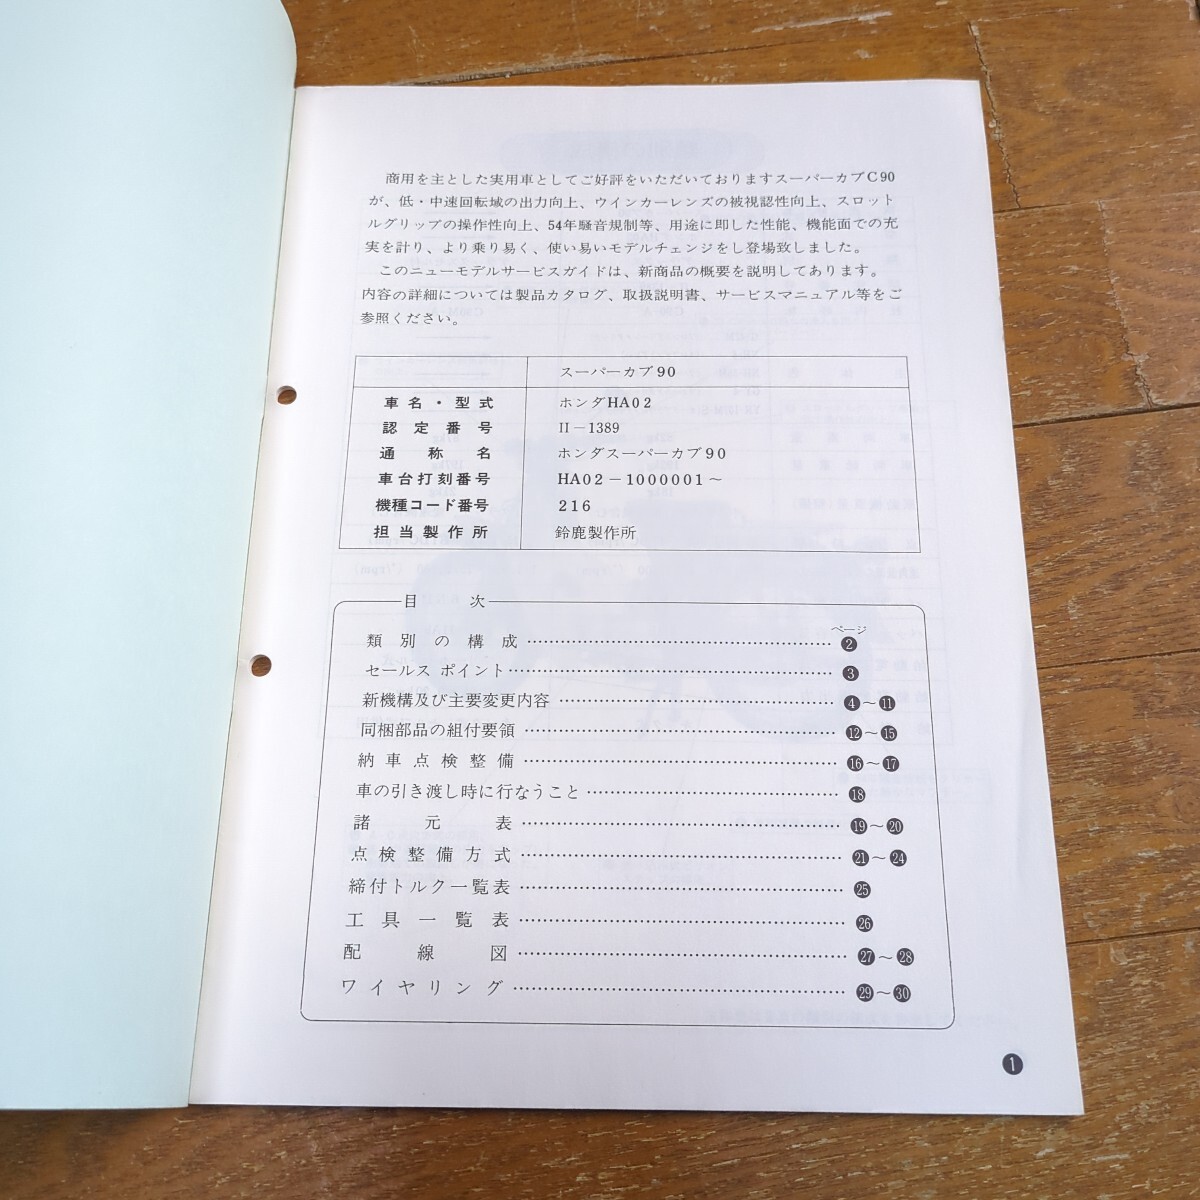 商用を主とした実用車としてご好評をいただいておりますスーパーカブC90
が、低・中速回転域の出力向上、ウインカーレンズの被視認性向上、スロット
ルグリップの操作性向上、54年騒音規制等、用途に即した性能、機能面での充
実を計り、より乗り易く、使い易いモデルチェンジをし登場致しました。
このニューモデルサービスガイドは、新商品の概要を説明してあります。
内容の詳細については製品カタログ、取扱説明書、サービスマニュアル等をご
参照ください。
スーパーカブ90
車名・型式 ホンダHA02
認定番号 II-1389
通称名 ホンダスーパーカブ90
車台打刻番号 HA02-1000001~
機種コード番号 216
担当製作所 鈴鹿製作所
目次
ページ
類別の構成 2
セールス ポイント 3
新機構及び主要変更内容 4~11
同梱部品の組付要領 12~15
納車点検整備 16~17
車の引き渡し時に行なうこと 18
諸元表 19~20
点検整備方式 21~24
締付トルク一覧表 25
工具一覧表 26
配線図 27~28
ワイヤリング 29~30
1